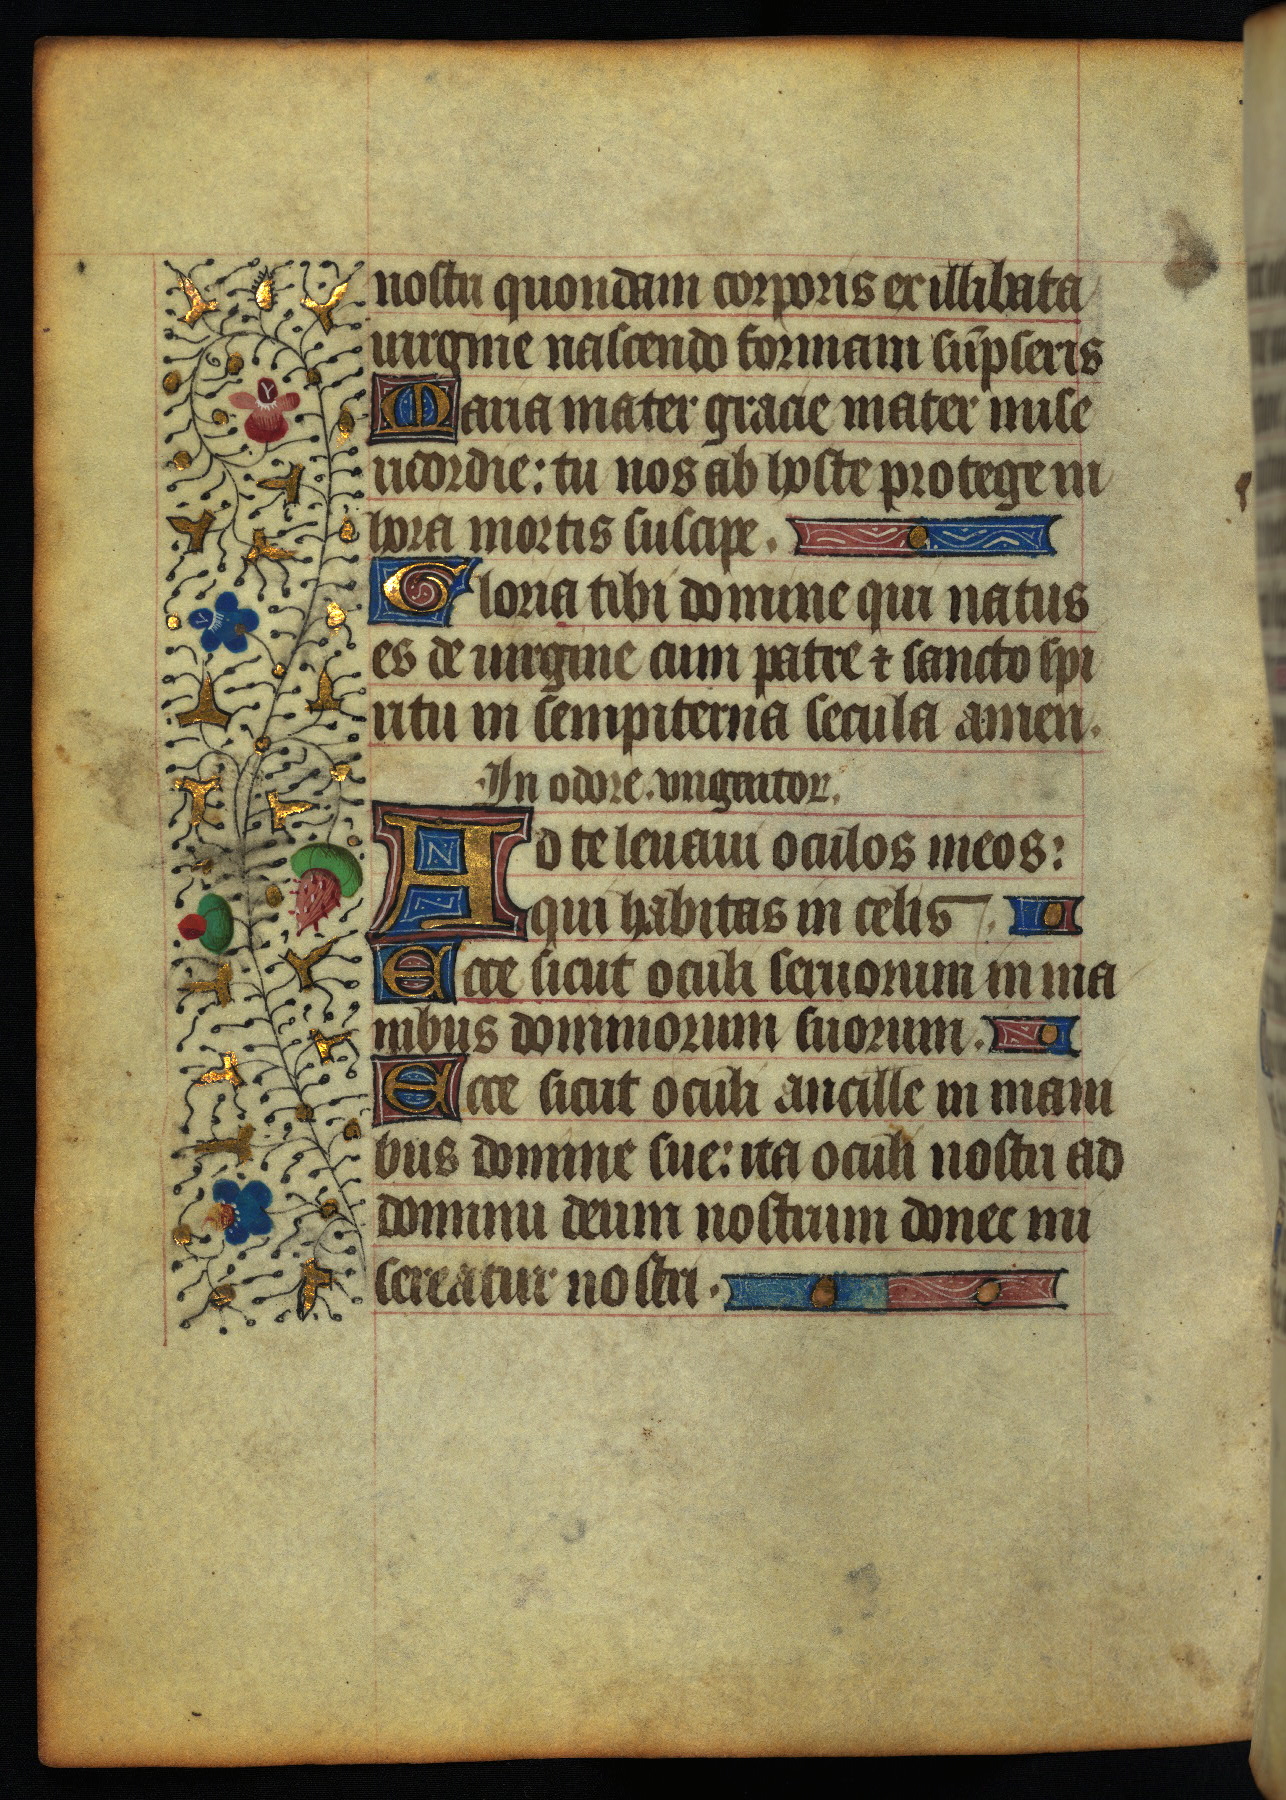 nostri quondam corporis ex illibata
uirgine nascendo formam sũpseris
Maria mater gracie mater mise
ricordie: tu nos ab hoste protege in
hora mortis suscipe.
Gloria tibi domine qui natus
es de uirgine cum patre ⁊ sancto spi
ritu in sempiterna secula amen.
In odore. vngentor.
Ad te leuaui oculos meos:
qui habitas in celis.
Ecce sicut oculi seruorum in ma
nibus dominorum suorum.
Ecce sicut oculi ancille in mani
bus domine sue: ita oculi nostri ad
dominu deum nostrum donec mi
sereatur nostri.